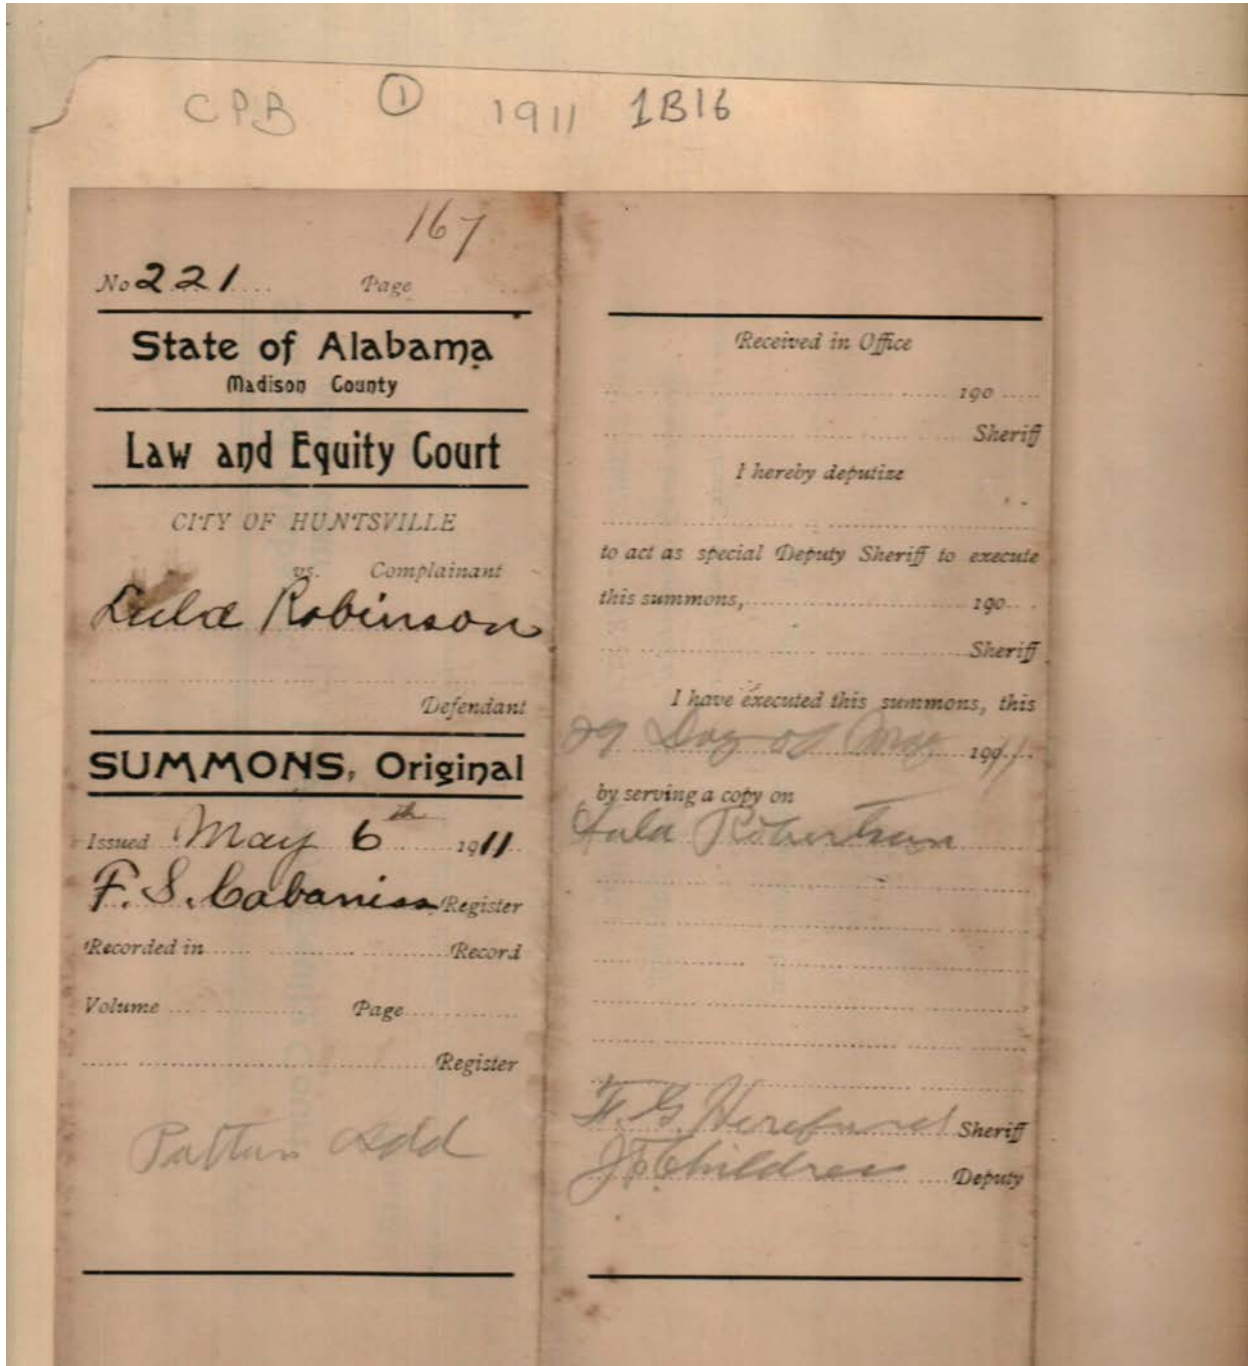 CPB 1 1911 1B16
167
No 221 Page
State of Alabama
Madison County
Law and Equity Court
CITY OF HUNTSVILLE
vs. Complainant
Lula Robinson
Defendant
SUMMONS, Original
Issued May 6th 1911
F. S. Cabaniss Register
Recorded in Record
Volume Page
Register
Patton Add
Received in Office
190
Sheriff
I hereby deputize
to act as special Deputy Sheriff to execute
this summons, 190
Sheriff
I have executed this summons, this
29 Day of May 1911
by serving a copy on
Lula Robertson
F. G. Hereford Sheriff
Childress Deputy